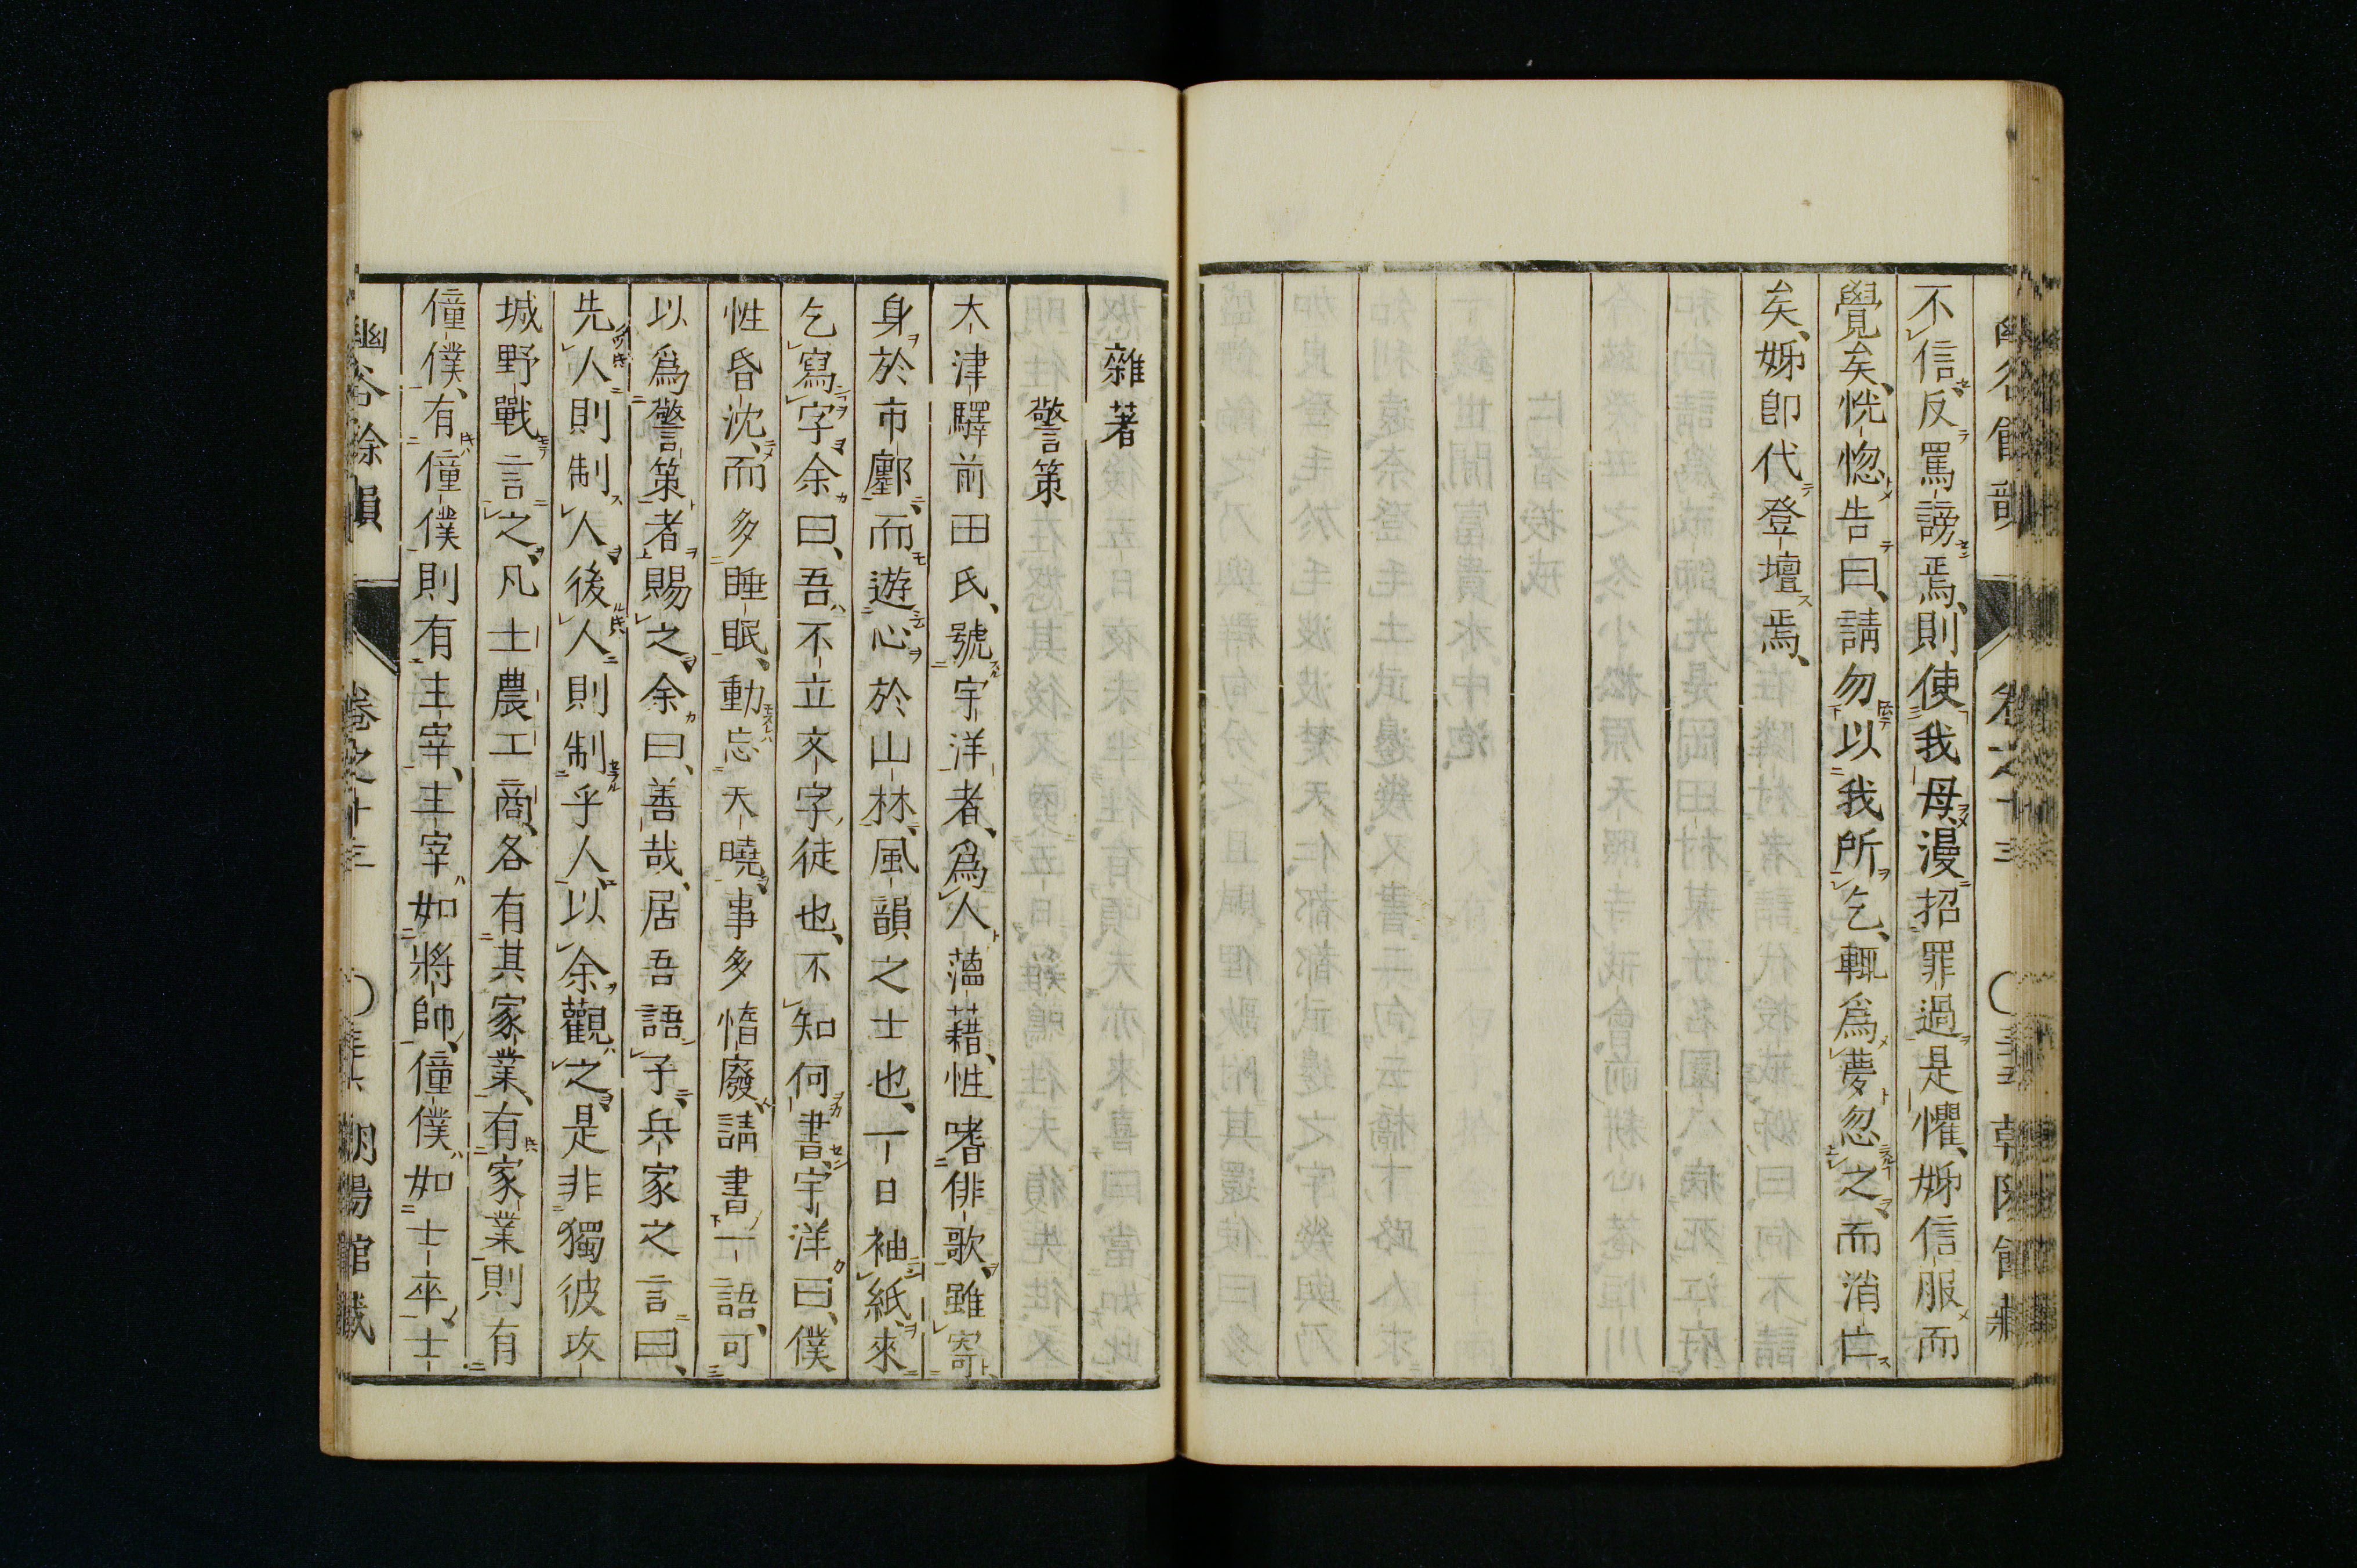 不信反罵謗焉、則使我母漫招罪過是懼、姊信服而
覺矣、恍惚告曰、請勿以我所乞、輒爲夢忽之而消亡
矣、姊卽代登壇焉、
雜著
警策
大津驛前田氏、號宇洋者、爲人薀藉、性嗜俳歌、雖寄
身於市鄽、而遊心於山林、風韻之士也、一日袖紙來
乞寫字、余曰、吾不立文字徒也、不知何書、宇洋曰、僕
性昏沈、而多睡眠、動忘天曉、事多惰廢、請書一語、可
以爲警策者賜之、余曰、善哉、居吾語子、兵家之言曰、
先人則制人、後人則制乎人、以余觀之、是非獨彼攻
城野戰言之、凡士農工商、各有其家業、有家業則有
僮僕、有僮僕則有主宰、主宰如將帥、僮僕如士卒、士
幽谷餘韻 卷之十三 朝陽館藏